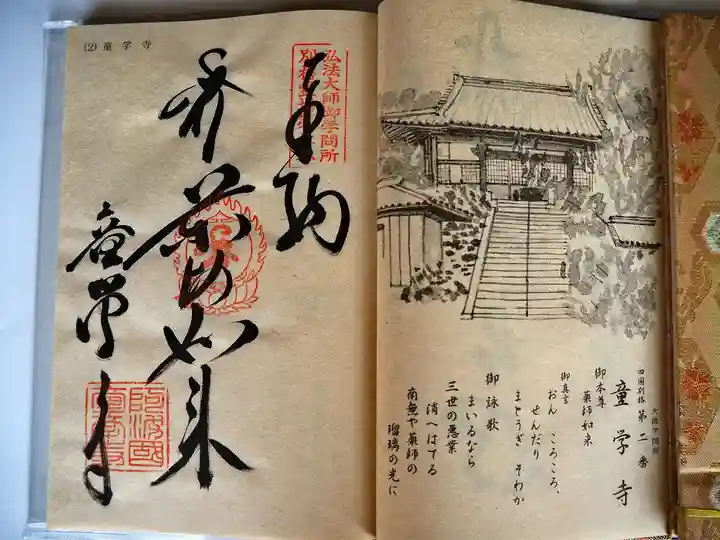 (2) 童学寺
奉納
弘法大師御学問所
薬師如来
童学寺
大師学問所
四国別格 第二番
童学寺
御本尊
薬師如来
御真言
おん ころころ、
せんだり
まとうぎ そわか
御詠歌
まいるなら
三世の悪業
消へはてる
南無や薬師の
瑠璃の光に